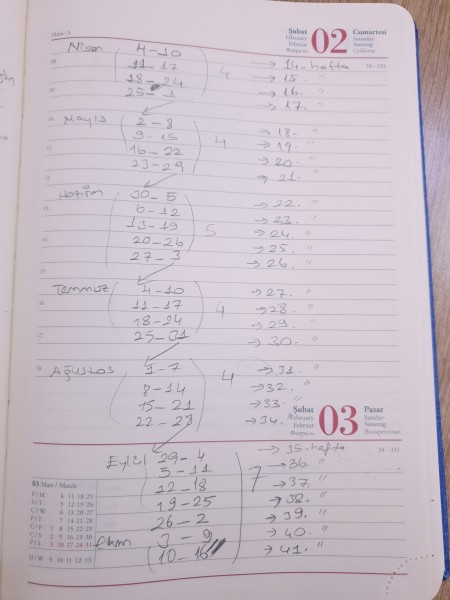 Şubat
February
Februar
Февраль
02
Cumartesi
Saturday
Samstag
Суббота
Nisan 4-10 → 14. hafta
11-17 4 → 15. "
18-24 → 16. "
25-1 → 17. "
Mayıs 2-8 → 18. "
9-15 4 → 19. "
16-22 → 20. "
23-29 → 21. "
Haziran 30-5 → 22. "
6-12 → 23. "
13-19 5 → 24. "
20-26 → 25. "
27-3 → 26. "
Temmuz 4-10 → 27. "
11-17 4 → 28. "
18-24 → 29. "
25-31 → 30. "
Ağustos 1-7 → 31. "
8-14 4 → 32. "
15-21 → 33. "
22-28 → 34. "
Şubat
February
Februar
Февраль
03
Pazar
Sunday
Sonntag
Воскресенье
Eylül 29-4 → 35. hafta
5-11 7 → 36. "
12-18 → 37. "
19-25 → 38. "
26-2 → 39. "
Ekim 3-9 → 40. "
10-16 → 41. "
03 Mart / March
P/M 4 11 18 25
S/T 5 12 19 26
Ç/W 6 13 20 27
P/T 7 14 21 28
C/F 1 8 15 22 29
C/S 2 9 16 23 30
P/S 3 10 17 24 31
H/W 9 10 11 12 13